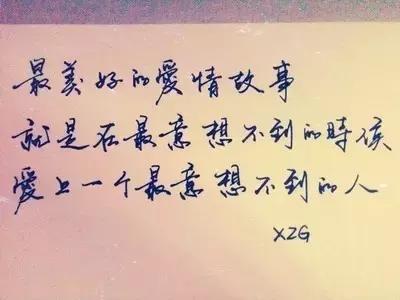 最美好的愛情故事
就是在最意想不到的時侯
愛上一个最意想不到的人
XZG